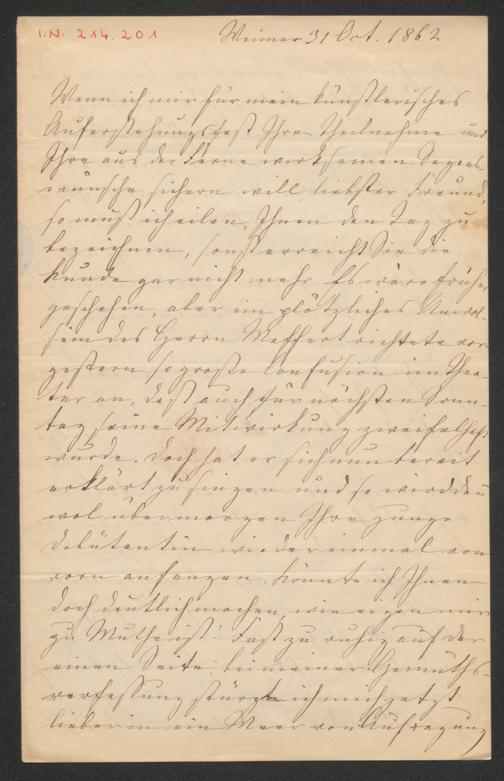 I.N. 214.201
Weimar 31 Oct. 1862.
Wenn ich mir für mein künstlerisches
Auferstehungsfest Ihre Theilnahme und
Ihre aus der Ferne wirksamen Segens
wünsche sichern will liebster Freund,
so muß ich eilen, Ihnen den Tag zu
bezeichnen, sonst erreicht Sie die
Kunde gar nicht mehr. Es wäre früher
geschehen, aber ein plötzliches Unwol-
sein des Herrn Meffert richtete vor
gestern so große Confusion im Thea-
ter an, daß auch für nächsten Sonn-
tag seine Mitwirkung zweifelhaft
wurde. Doch hat er sich nun bereit
erklärt zu singen und so wird denn
wol übermorgen Ihre junge
Debütantin wieder einmal von
vorn anfangen. Könnte ich Ihnen
doch deutlich machen, wie eigen mir
zu Muthe ist! Fast zu ruhig auf der
einen Seite bei meiner Gemüths-
verfassung stürzte ich mich jetzt
lieber in ein Meer von Aufregung